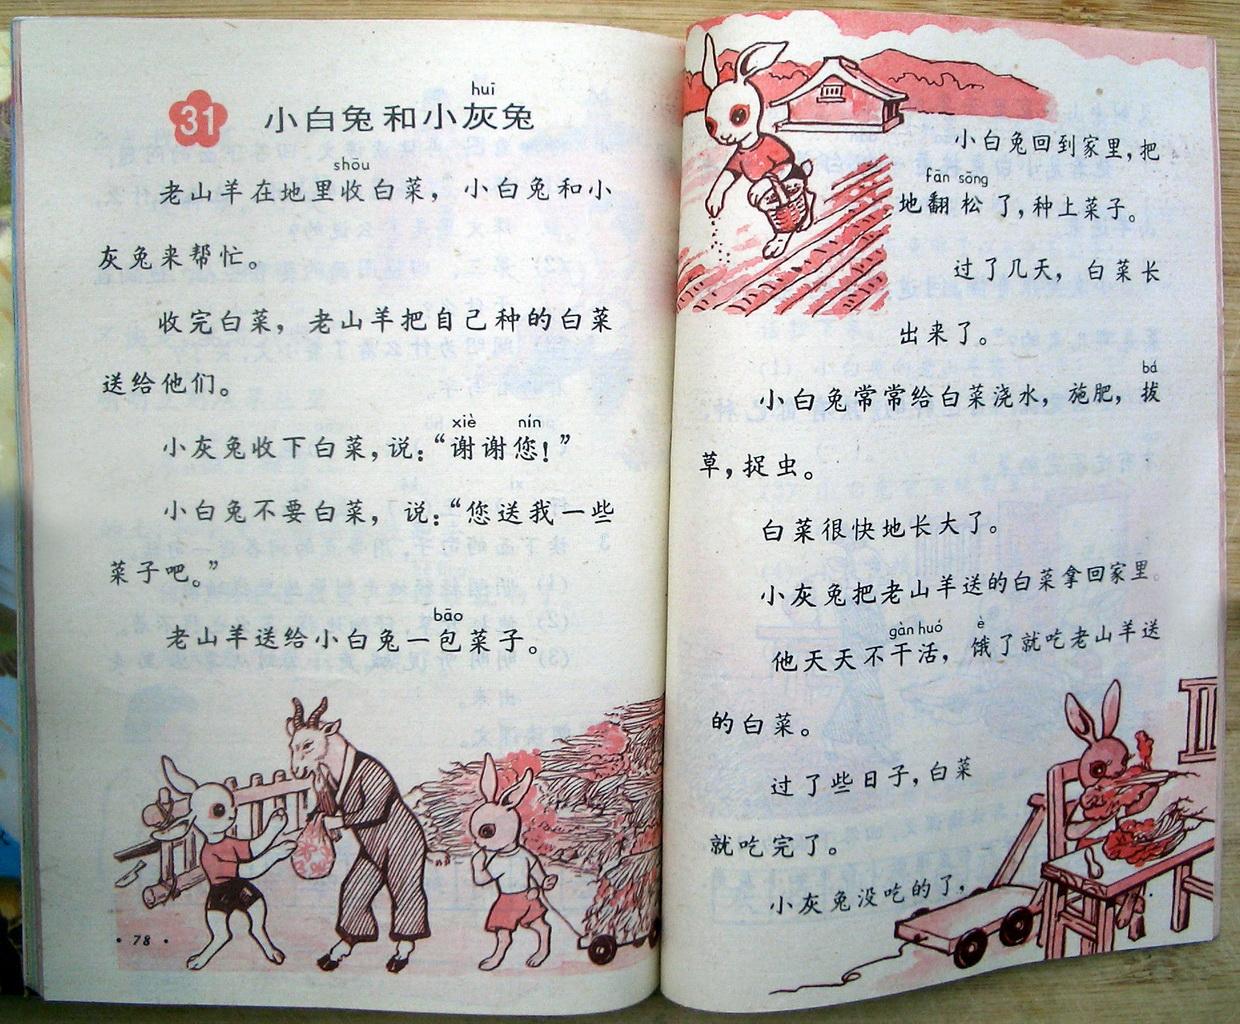 31
huī
小白兔和小灰兔
shōu
老山羊在地里收白菜，小白兔和小
灰兔来帮忙。
收完白菜，老山羊把自己种的白菜
送给他们。
xiè nín
小灰兔收下白菜，说：“谢谢您！”
小白兔不要白菜，说：“您送我一些
菜子吧。”
bāo
老山羊送给小白兔一包菜子。
·78·
小白兔回到家里，把
fān sōng
地翻松了，种上菜子。
过了几天，白菜长
出来了。
bá
小白兔常常给白菜浇水，施肥，拔
草，捉虫。
白菜很快地长大了。
小灰兔把老山羊送的白菜拿回家里。
gàn huó è
他天天不干活，饿了就吃老山羊送
的白菜。
过了些日子，白菜
就吃完了。
小灰兔没吃的了，